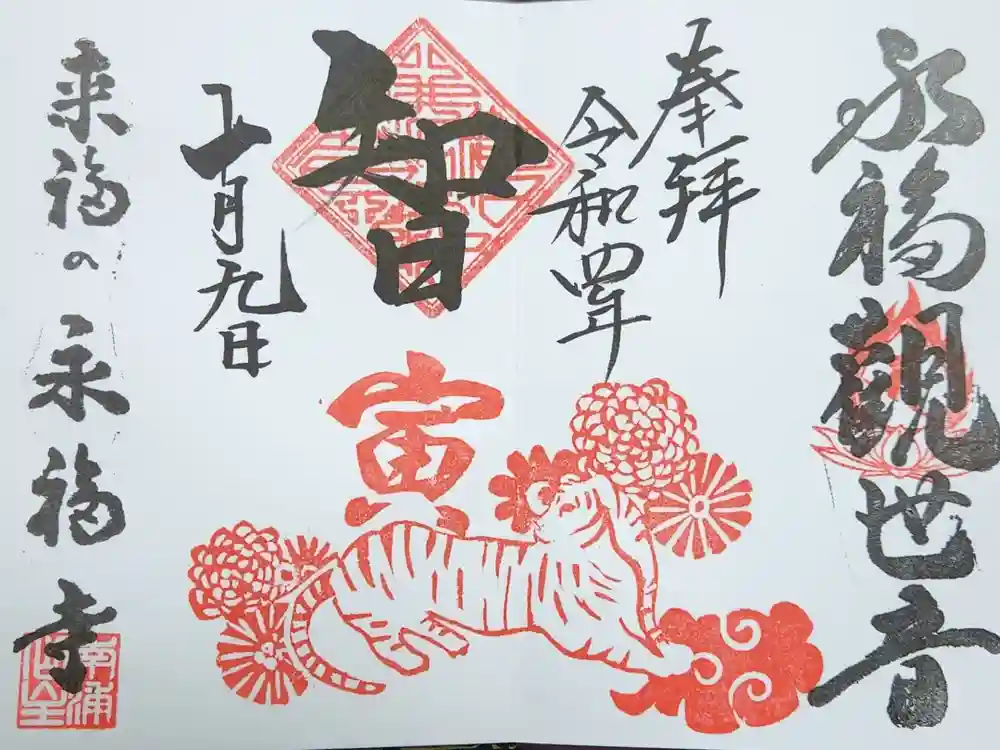 永福観世音
奉拝
令和四年
智
寅
十一月九日
来福の永福寺